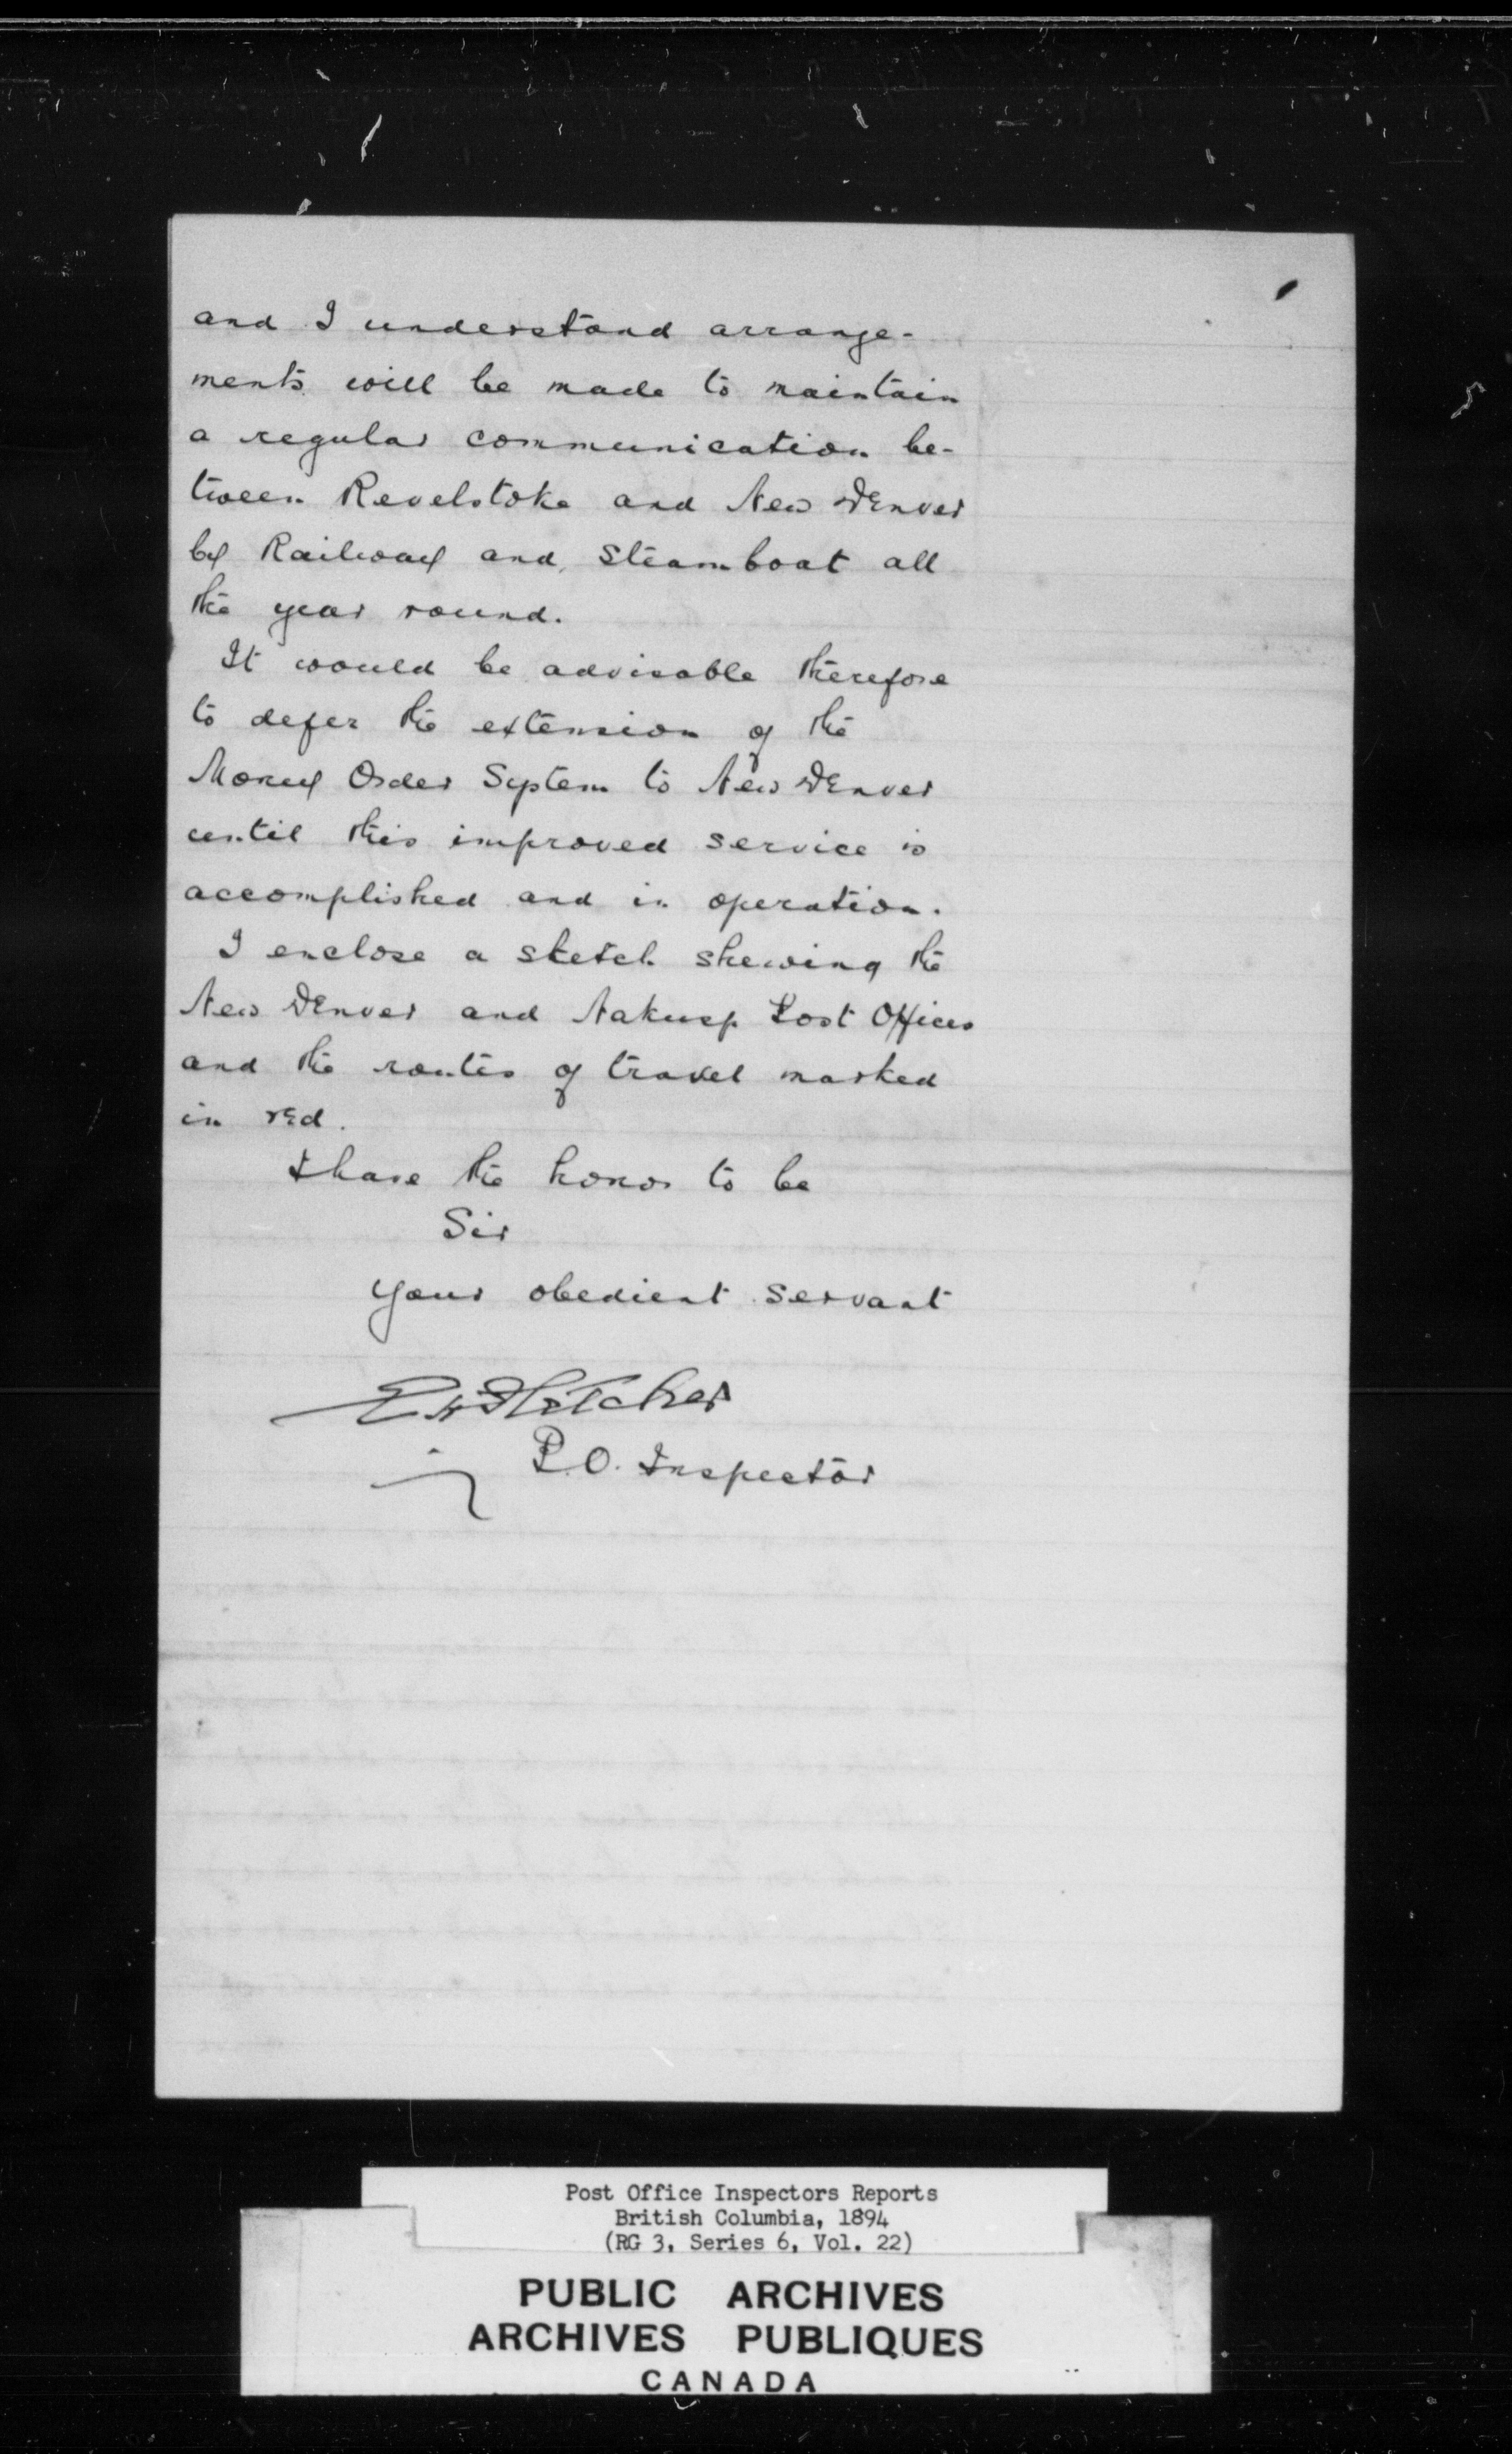 and I understand arrange-
ments will be made to maintain
a regular communication be-
tween Revelstoke and New Denver
by Railway and Steamboat all
the year round.
It would be advisable therefore
to defer the extension of the
Money Order System to New Denver
until this improved service is
accomplished and in operation.
I enclose a sketch shewing the
New Denver and Nakusp Post Offices
and the routes of travel marked
in red.
I have the honor to be
Sir
Your obedient servant
E H Fletcher
P.O. Inspector
Post Office Inspectors Reports
British Columbia, 1894
(RG 3, Series 6, Vol. 22)
PUBLIC ARCHIVES
ARCHIVES PUBLIQUES
CANADA